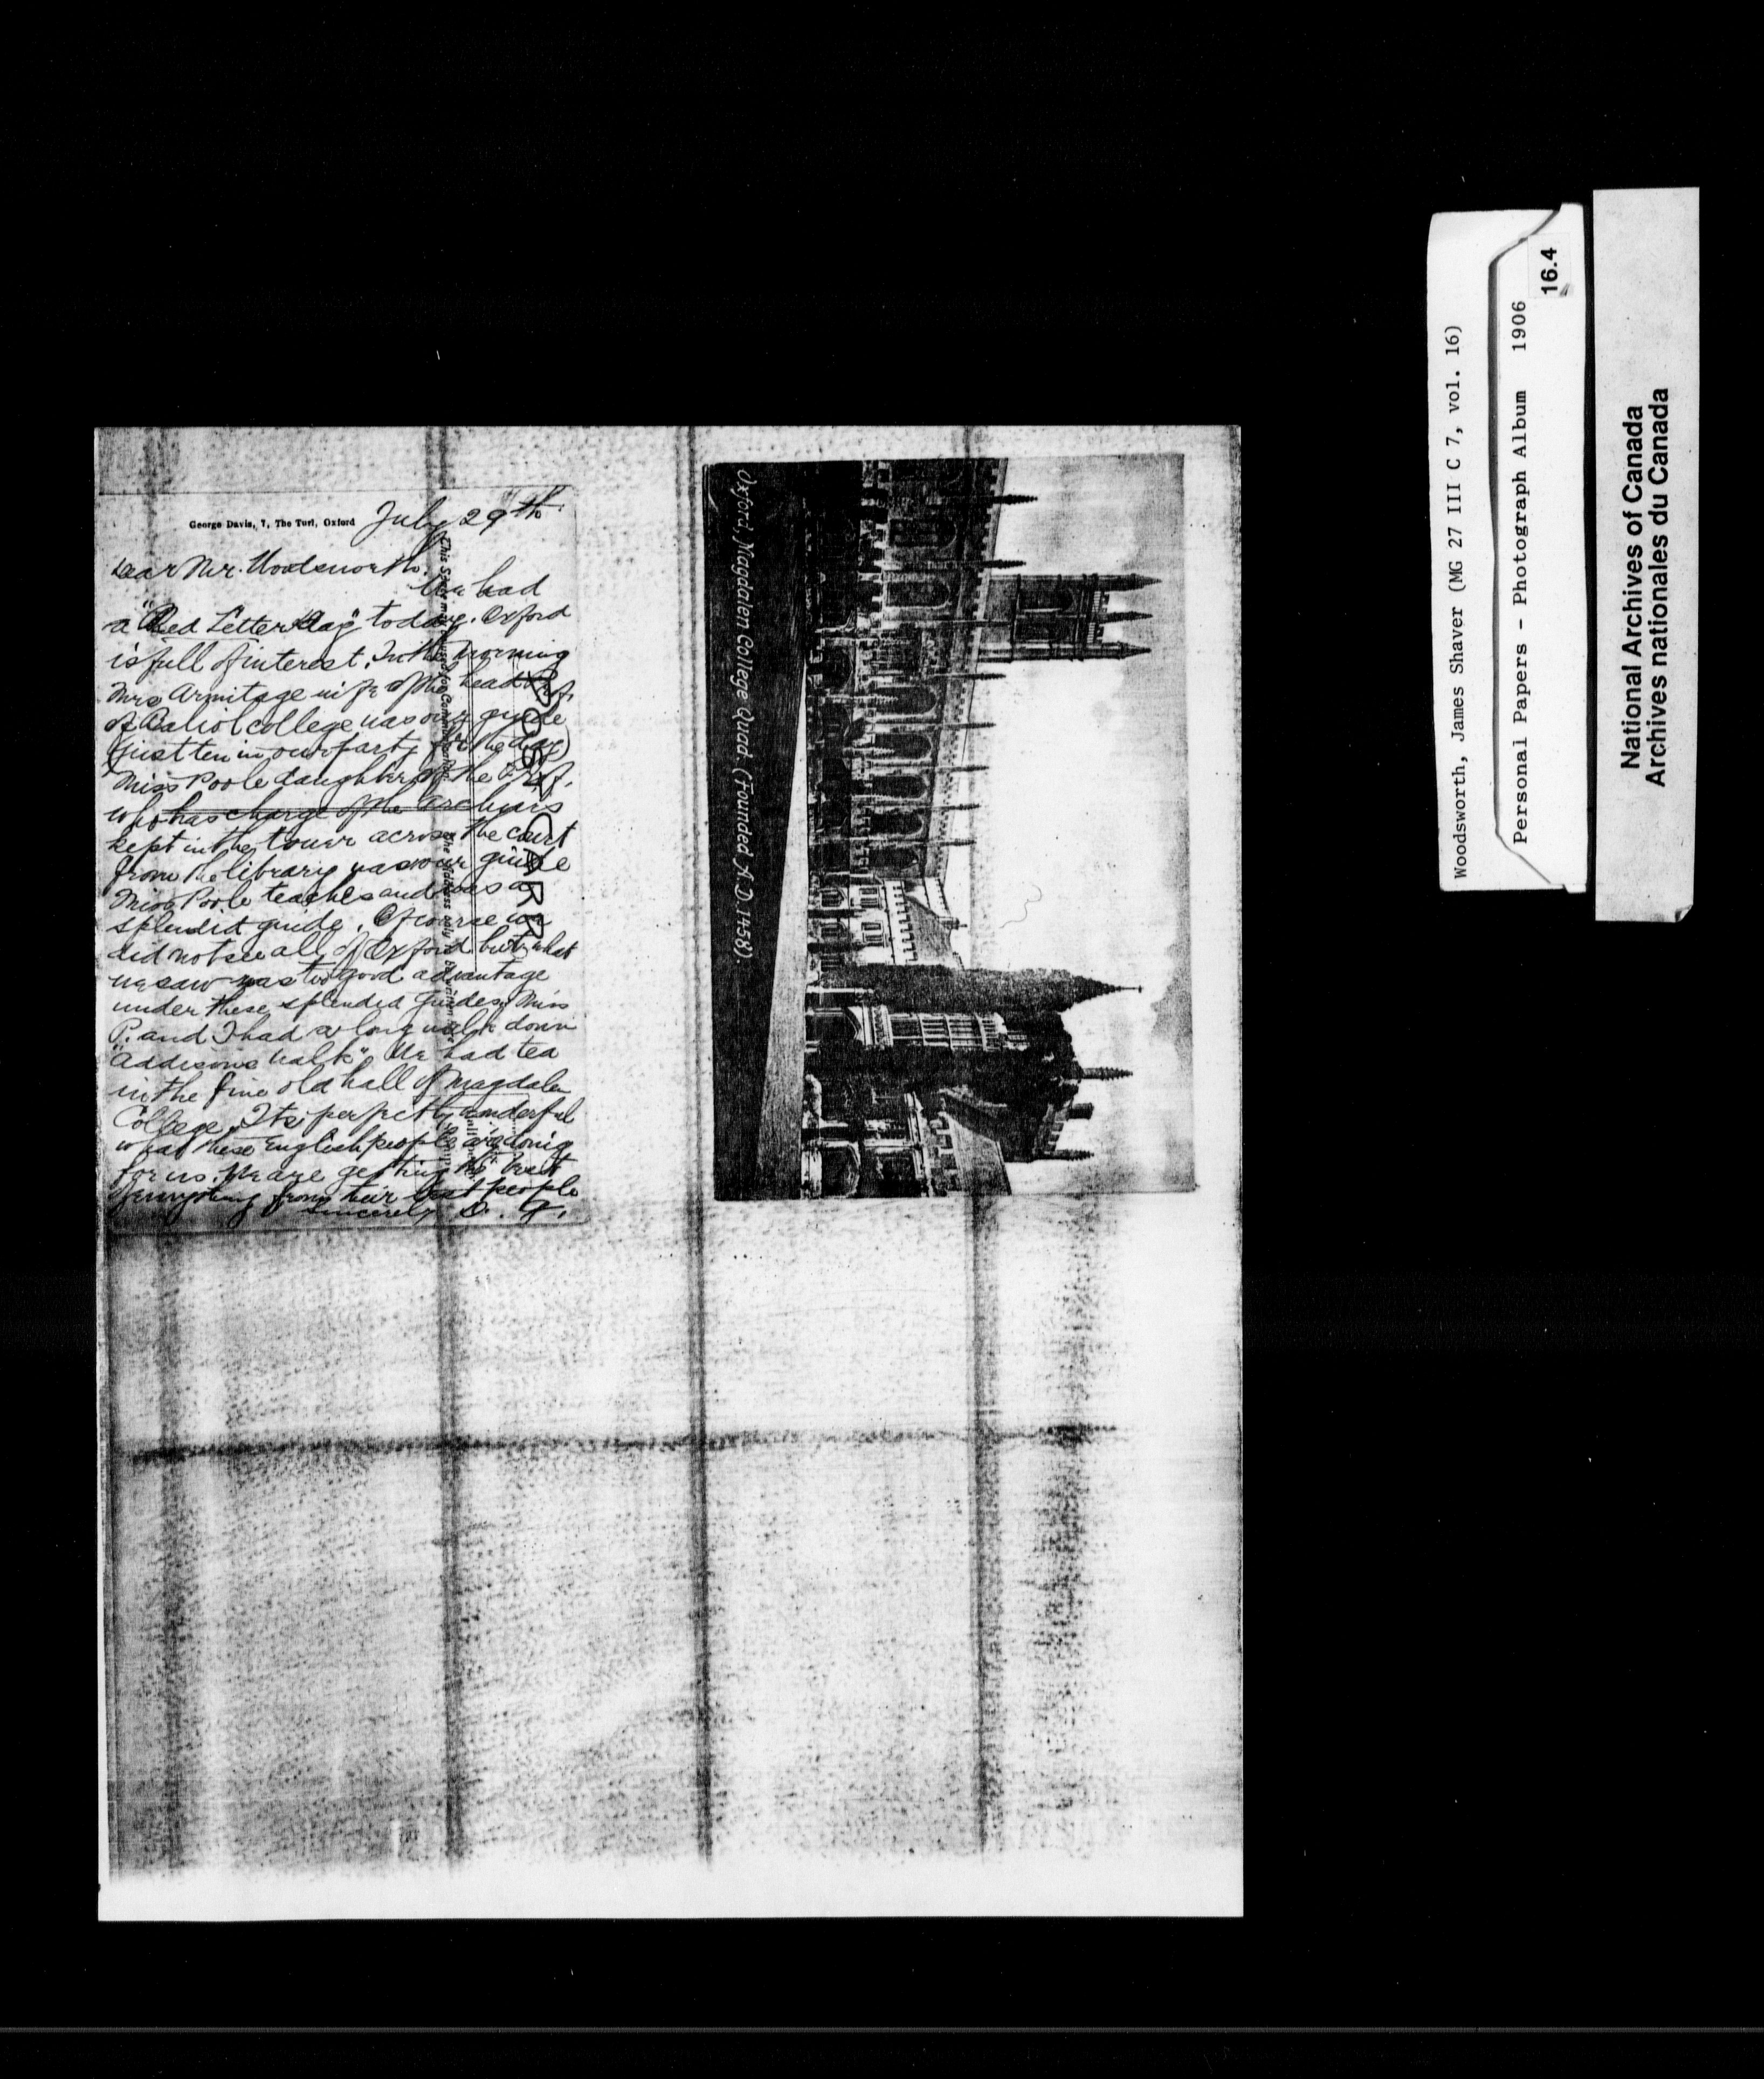 George Davis, 7, The Turl, Oxford
July 29th
Dear Mr. Woodsworth.
We had
a "Red Letter Day" today. Oxford
is full of interest. In the morning
Mrs Armitage wife of the head Prof.
of Baliol college was our guide
(just ten in our party for the day)
Miss Poole daughter of the Prof.
who has charge of the archives
kept in the tower across the court
from the library was our guide
Miss Poole teaches and was a
splendid guide. Of course we
did not see all of Oxford but what
we saw was to good advantage
under these splendid guides. Miss
P. and I had a long walk down
"Addisons Walk". We had tea
in the fine old hall of Magdalen
College. Its perfectly wonderful
what these English people are doing
for us. We are getting the best
of everything from their best people
Sincerely
POST CARD
Oxford, Magdalen College Quad. (Founded A.D. 1458).
Woodsworth, James Shaver (MG 27 III C 7, vol. 16)
Personal Papers - Photograph Album 1906
16.4
National Archives of Canada
Archives nationales du Canada